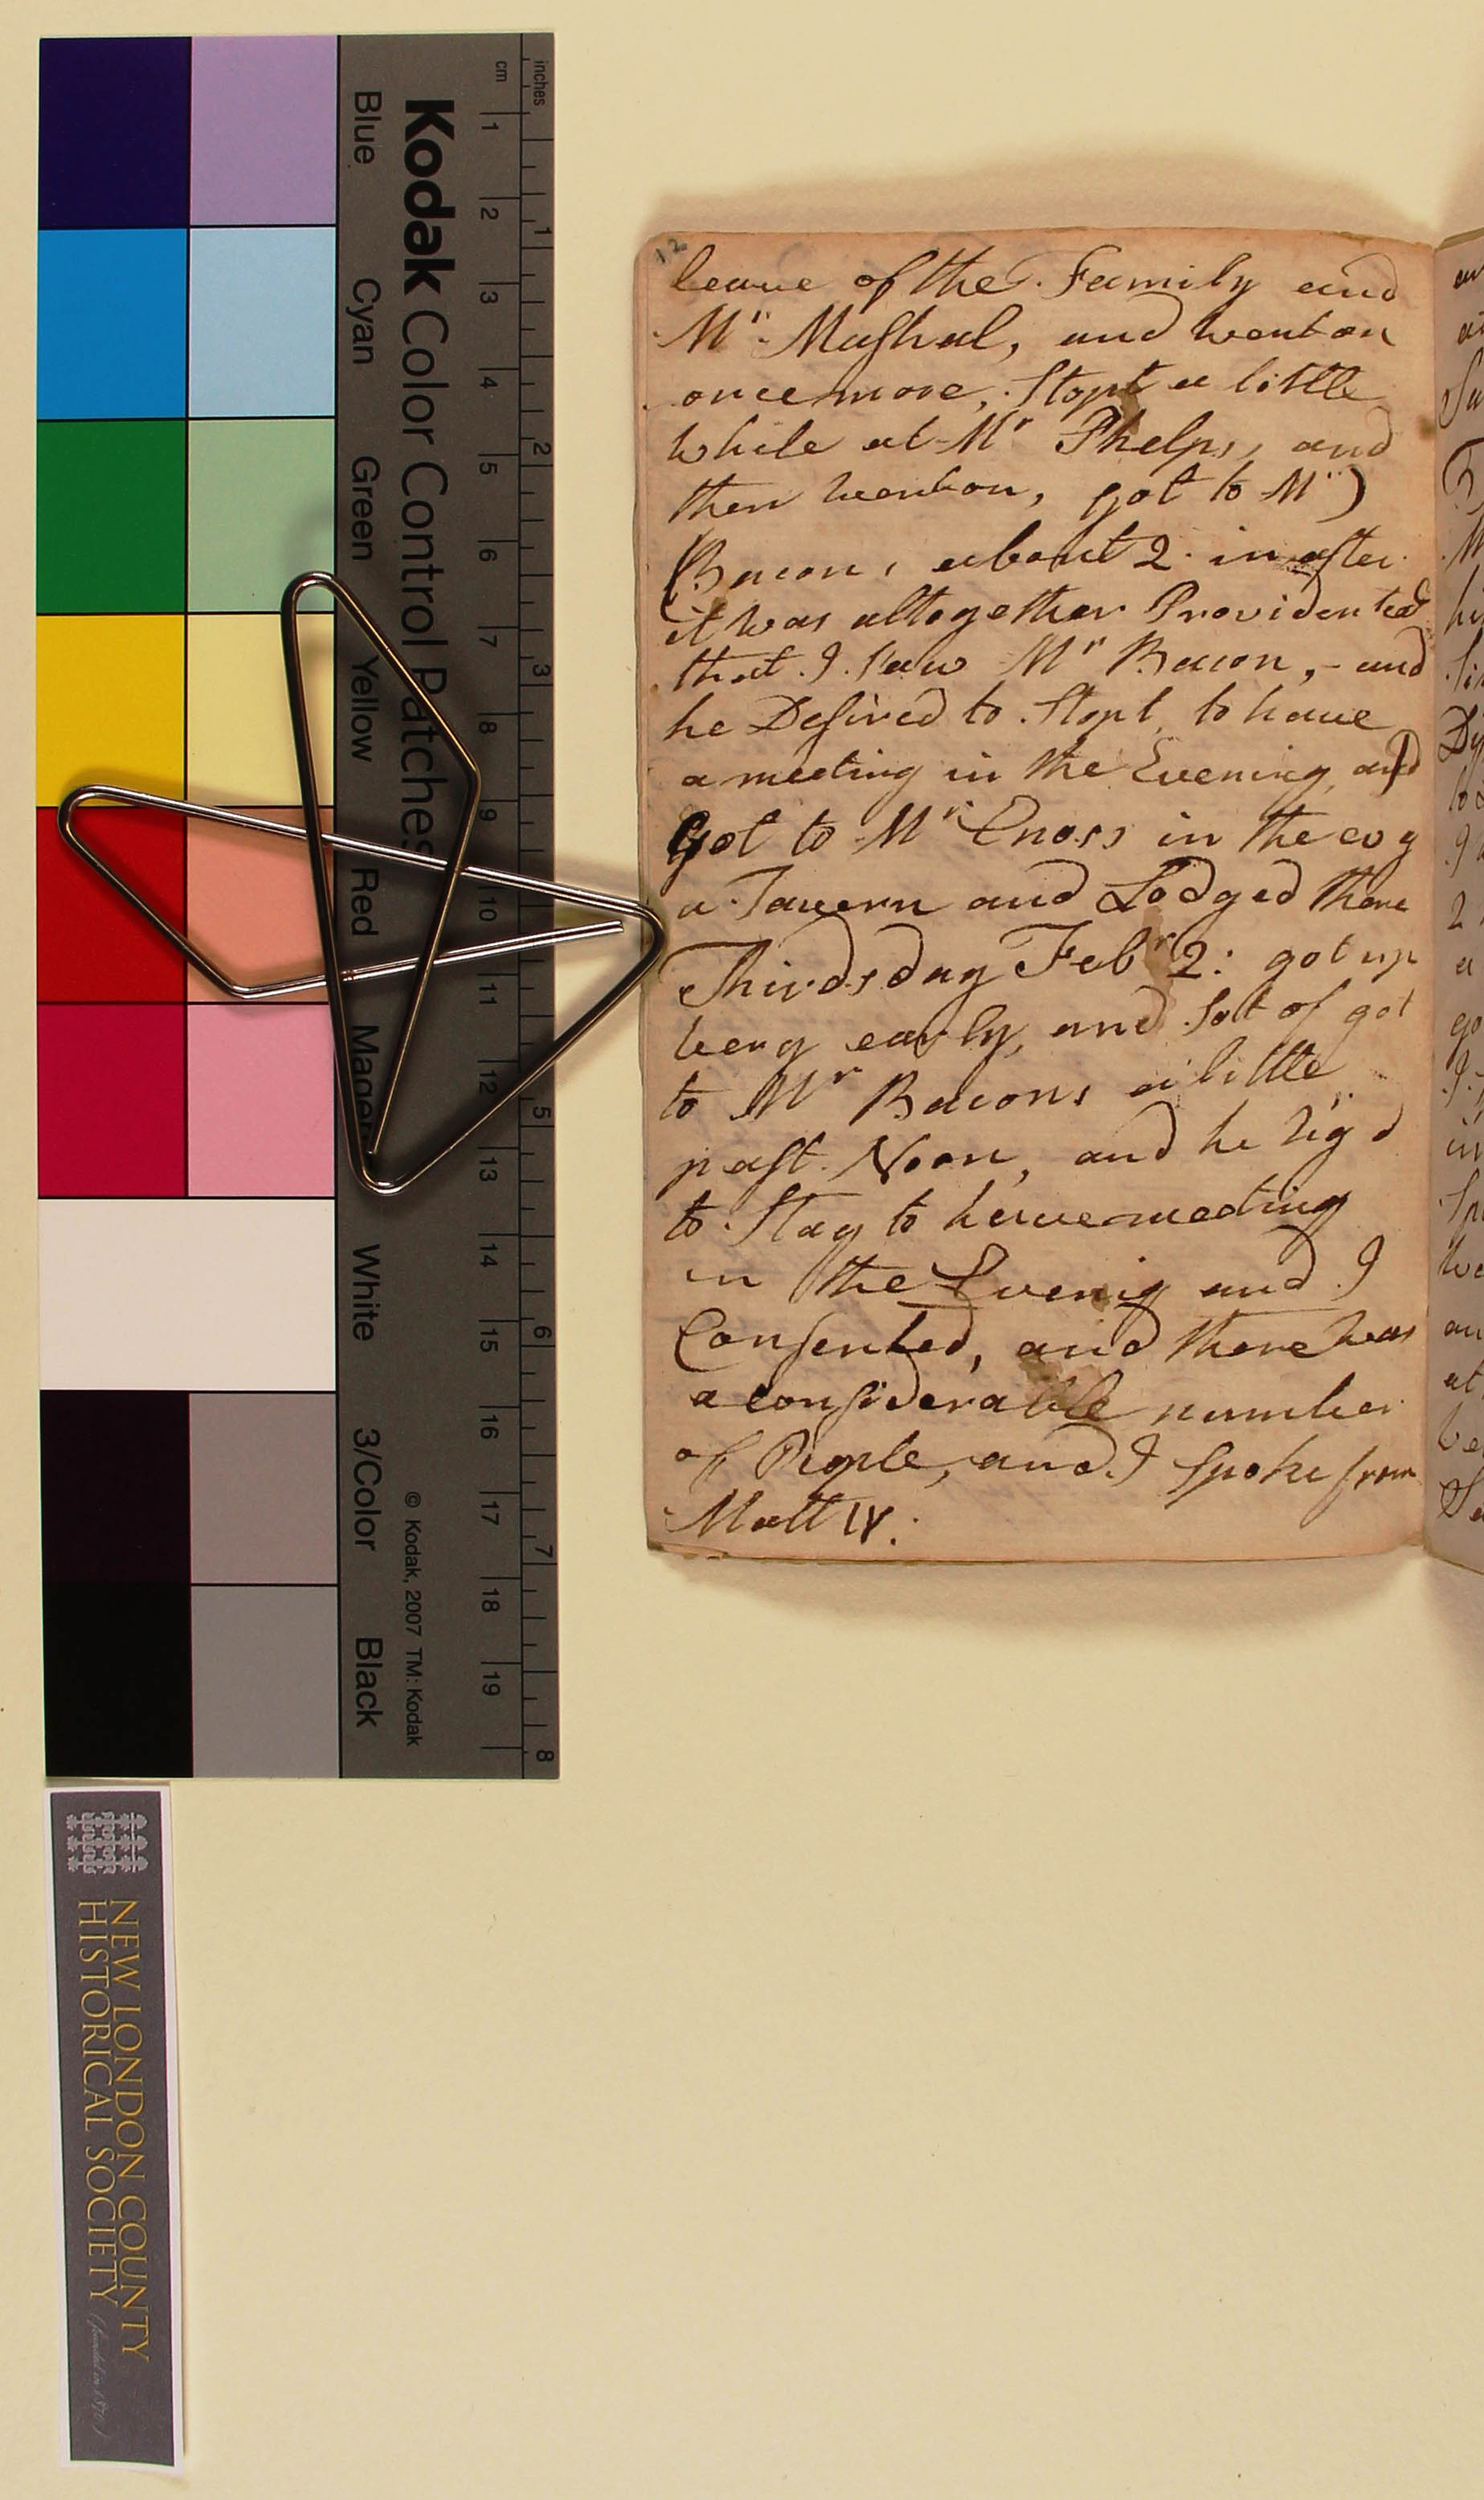 inches
cm
1 2 3 4 5 6 7 8 9 10 11 12 13 14 15 16 17 18 19
1 2 3 5 6 7 8
Kodak Color Control Patches
© Kodak, 2007 TM: Kodak
Blue Cyan Green Yellow Red Magen White 3/Color Black
NEW LONDON COUNTY
HISTORICAL SOCIETY
(founded in 1870)
12
leave of the Family and
Mr Mashal, and went on
once more, Stopt a little
while at Mr Phelps, and
then went on, got to Mr)
(Bacons about 2 in after
it was altogether Providential
that I saw Mr Bacon, - and
he Desired to Stopt to have
a meeting in the Evening, and
Got to Mr Enoss in the evg
a Tavern and Lodged there
Thirdsday Febr 2: got up
very early, and Sot of got
to Mr Bacons a little
past Noon, and he
to Stay to have meeting
in the Evenig and I
Consented, and there was
a considerable number
of People, and I Spoke from
Matt IV: